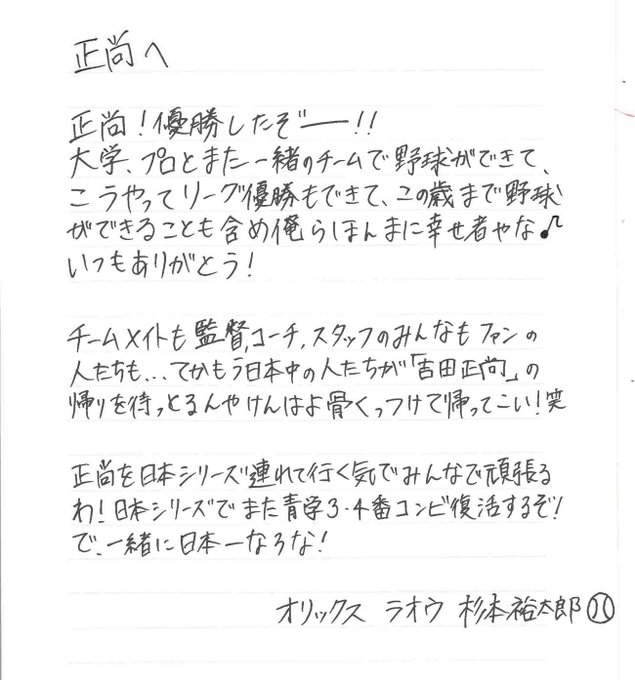 正尚へ
正尚！優勝したぞ゛ー！！
大学、プロとまた一緒のチームで野球ができて、
こうやってリーグ優勝もできて、この歳まで野球
ができることも含め俺らほんまに幸せ者やな♪
いつもありがとう！
チームメイトも監督、コーチ、スタッフのみんなもファンの
人たちも...てかもう日本中の人たちが「吉田正尚」の
帰りを待っとるんやけんはよ骨くっつけて帰ってこい！笑
正尚を日本シリーズ連れて行く気でみんなで頑張る
わ！日本シリーズでまた青学3・4番コンビ復活するぞ！
で、一緒に日本一なろな！
オリックス ラオウ 杉本裕太郎